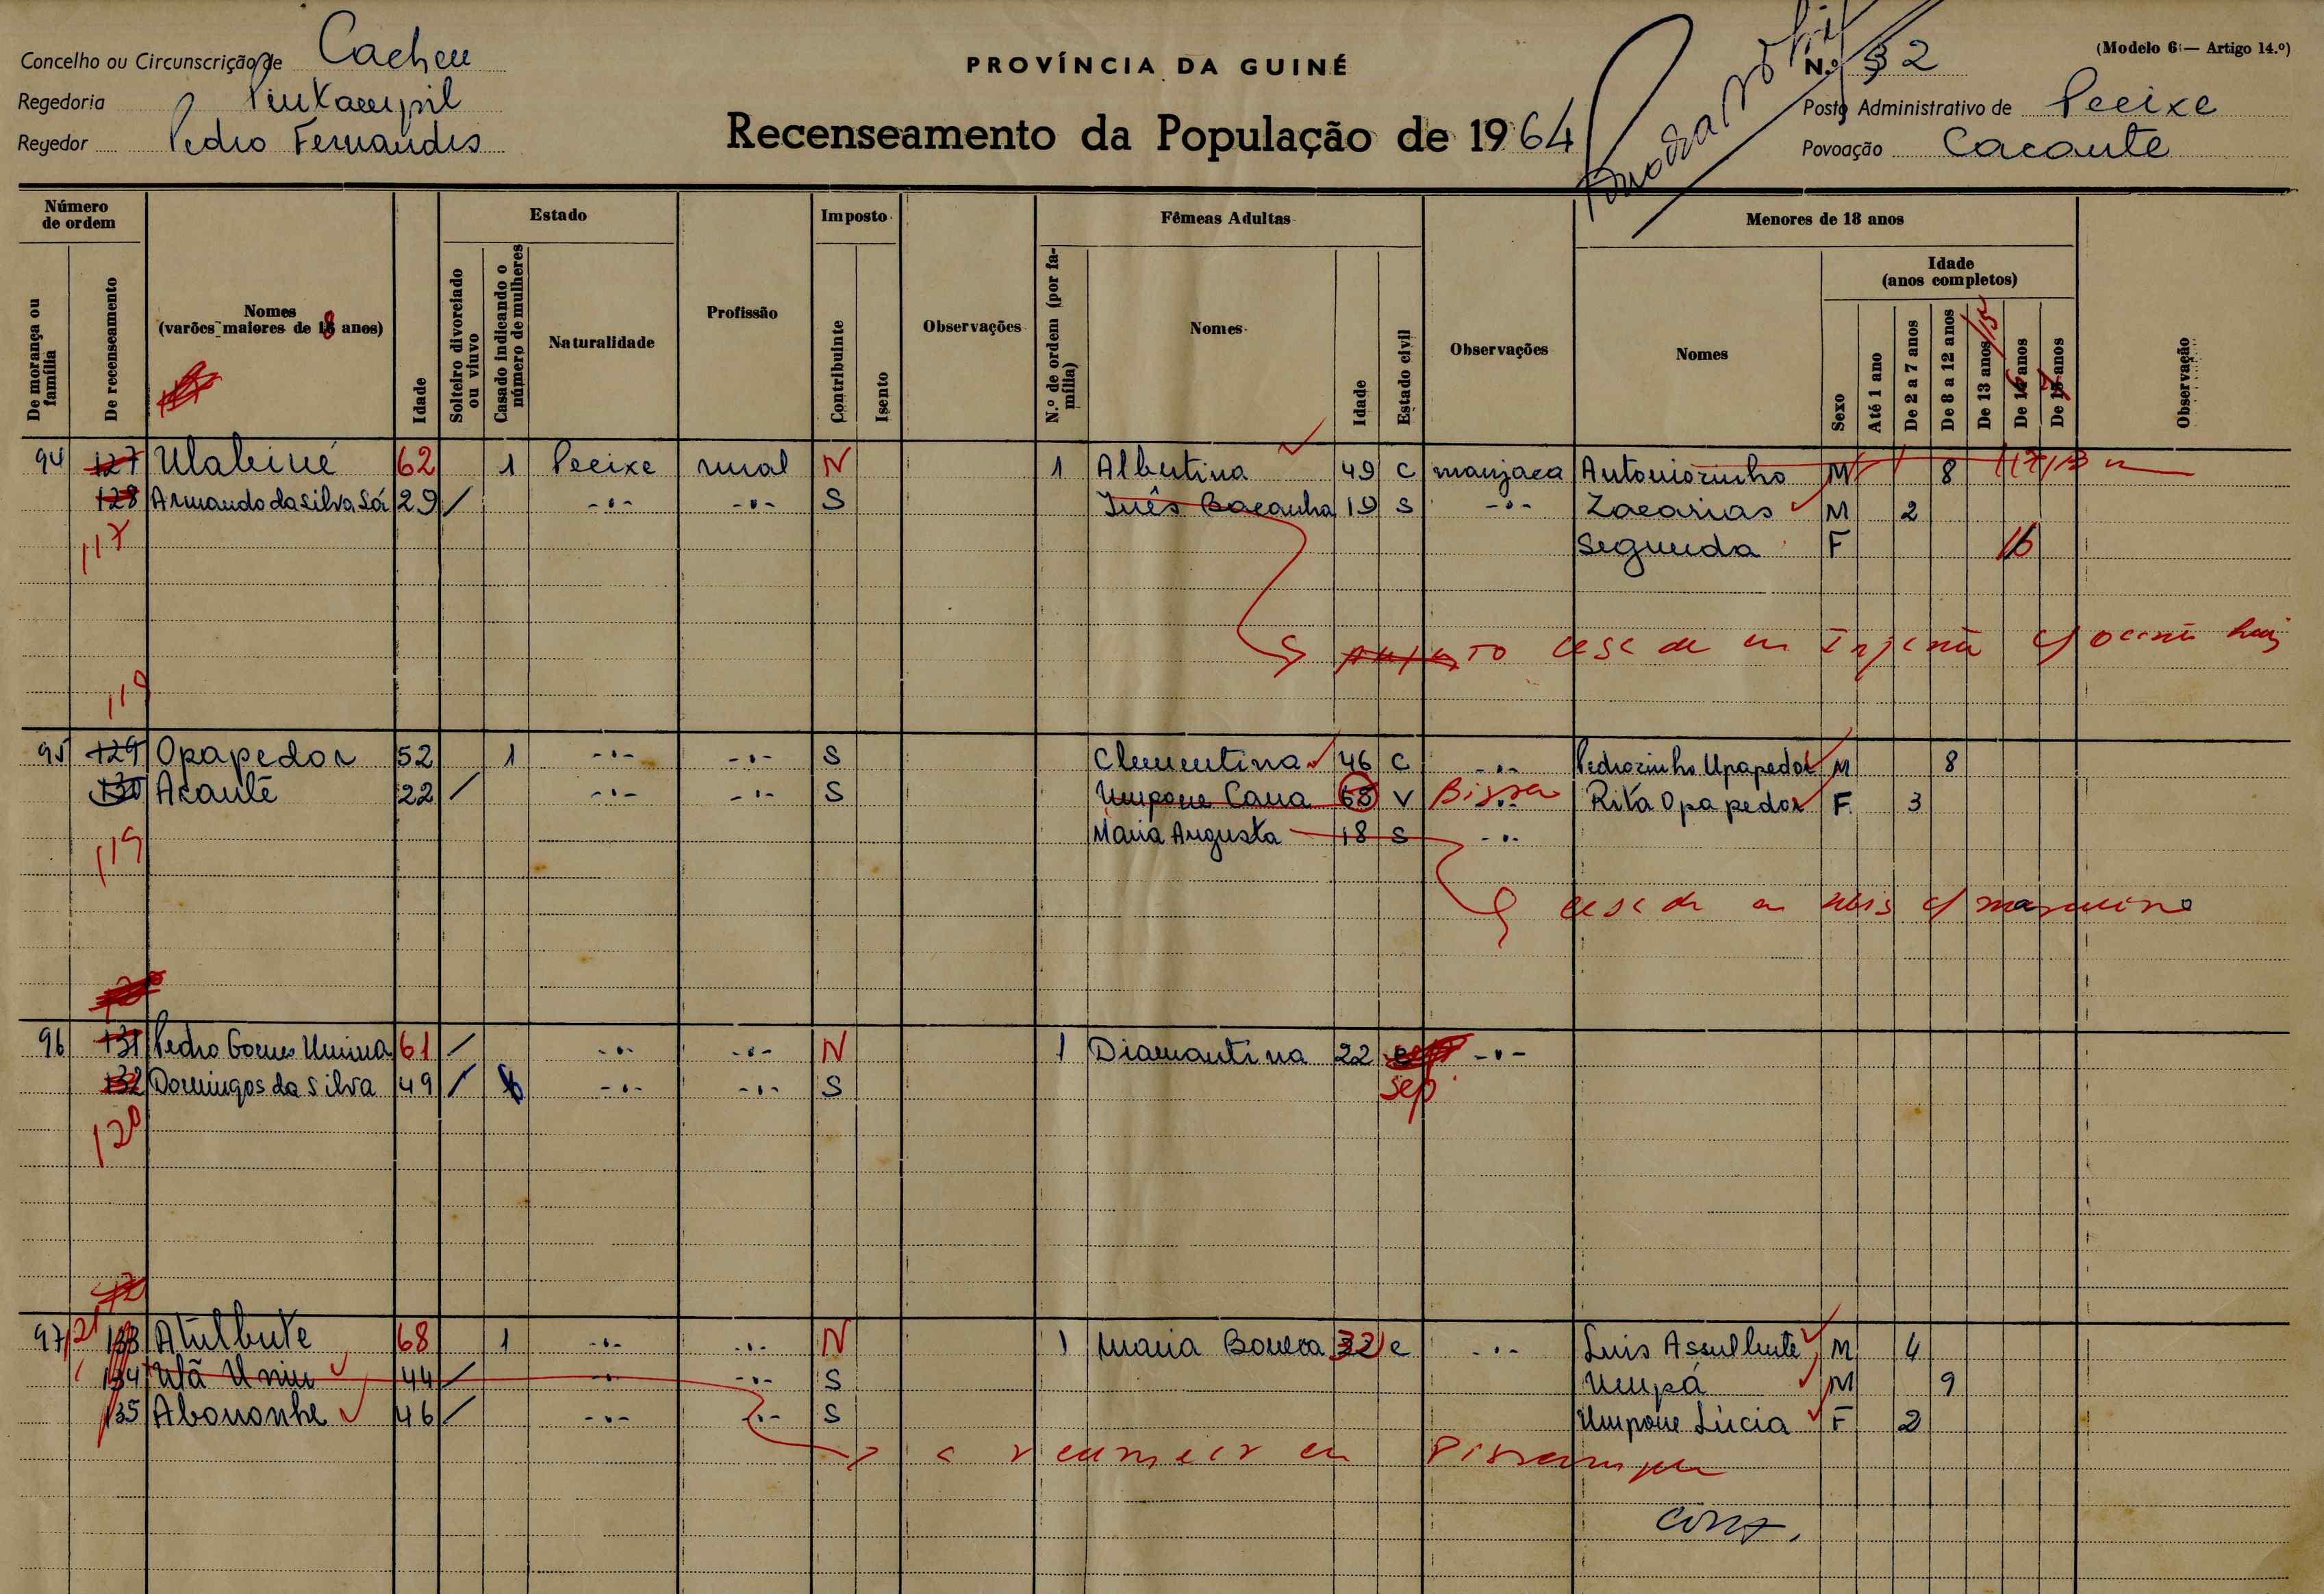 Concelho ou Circunscrição de Cacheu
Regedoria
Regedor Pedro Fernandes
PROVÍNCIA DA GUINÉ
Recenseamento da População de 1964
(Modelo 6 — Artigo 14.º)
N.º 32
Posto Administrativo de Pecixe
Povoação Cacante
Número de ordem
De morança ou família
De recenseamento
Nomes
(varões maiores de 18 anos)
Idade
Estado
Solteiro divorciado ou viuvo
Casado indicando o número de mulheres
Naturalidade
Profissão
Imposto
Contribuinte
Isento
Observações
Fêmeas Adultas
N.º de ordem (por família)
Nomes
Idade
Estado civil
Observações
Menores de 18 anos
Nomes
Sexo
Idade
(anos completos)
Até 1 ano
De 2 a 7 anos
De 8 a 12 anos
De 13 anos 15
De 16 anos
De 17 anos
Observação
94 127 Ulabiné 62 1 Pecixe rural N 1 Albertina 49 C manjaca Antoniozinho M 8
128 Armando da Silva Sá 29 / -"- -"- S Inês Bacanha 19 S -"- Zacarias M 2
117 Segunda F 16
119
95 129 Opapedor 52 1 -"- -"- S Clementina 46 C -"- Pedrozinho Upapedor M 8
130 Acautê 22 / -"- -"- S Umpone Caua 68 V Bissau -"- Rita Opapedor F. 3
119 Maria Augusta 18 S -"-
96 131 Pedro Gomes Unina 61 / -"- -"- N 1 Diamantina 22 -"-
132 Domingos da Silva 49 / -"- -"- S sep.
120
97 121 133 Atulbute 68 1 -"- -"- N 1 Maria 32 C -"- Luis Assulbute M 4
134 Utã Uniu 44 / -"- -"- S Umpá M 9
135 Abononhe 46 / -"- -"- S Umpone Lúcia F 2
Cont.